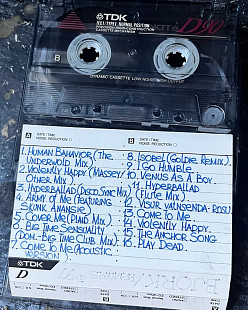 TDK
IECI/TYPE I · NORMAL POSITION
CASSETTE MECHANISM
D90
B
DYNAMIC CASSETTE LOW NOISE HIGH OUTPUT
A DATE / TIME
NOISE REDUCTION
B DATE / TIME
NOISE REDUCTION
1. HUMAN BEHAVIOR (THE
UNDERWOLD MIX).
2. VIOLENTLY HAPPY (MASSEY/
OTHER MIX).
3. HYPERBALLAD (DISCO SYNC MIX)
4. ARMY OF ME (FEATURING
SKUNK ANANSIE)
5. COVER ME (PLAID MIX)
6. BIG TIME SENSUALITY
(DOM-BIG TIME CLUB MIX).
7. COME TO ME (ACOUSTIC
VERSION)
8. ISOBEL (GOLDIE REMIX).
9. I GO HUMBLE.
10. VENUS AS A BOY
11. HYPERBALLAD
(FLUTE MIX).
12. VISUR VATNSENDA-ROSU
13. COME TO ME.
14. VIOLENTLY HAPPY.
15. THE ANCHOR SONG
16. PLAY DEAD.
TDK
D